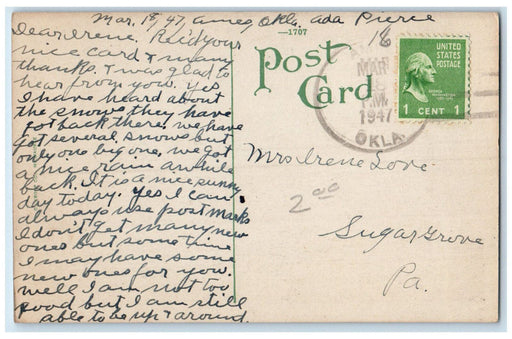 Mar. 18, '47, Ames, Okla. Ada Pierce
Dear Irene. Rec'd your
nice card + many
thanks. + was glad to
hear from you. Yes
I have heard about
the snows they have
got back there, we have
got several snows but
only one big one, we got
a nice rain awhile
back. It is a nice sunny
day today. yes I can
always use post marks
I don't get many new
ones but some time
I may have some
new ones for you.
well I am not too
good but I am still
able to be up + around.
—1707
Post
Card
MAR
P.M.
1947
OKLA.
UNITED
STATES
POSTAGE
1 CENT 1
Mrs Irene Love
200
Sugar Grove
Pa.